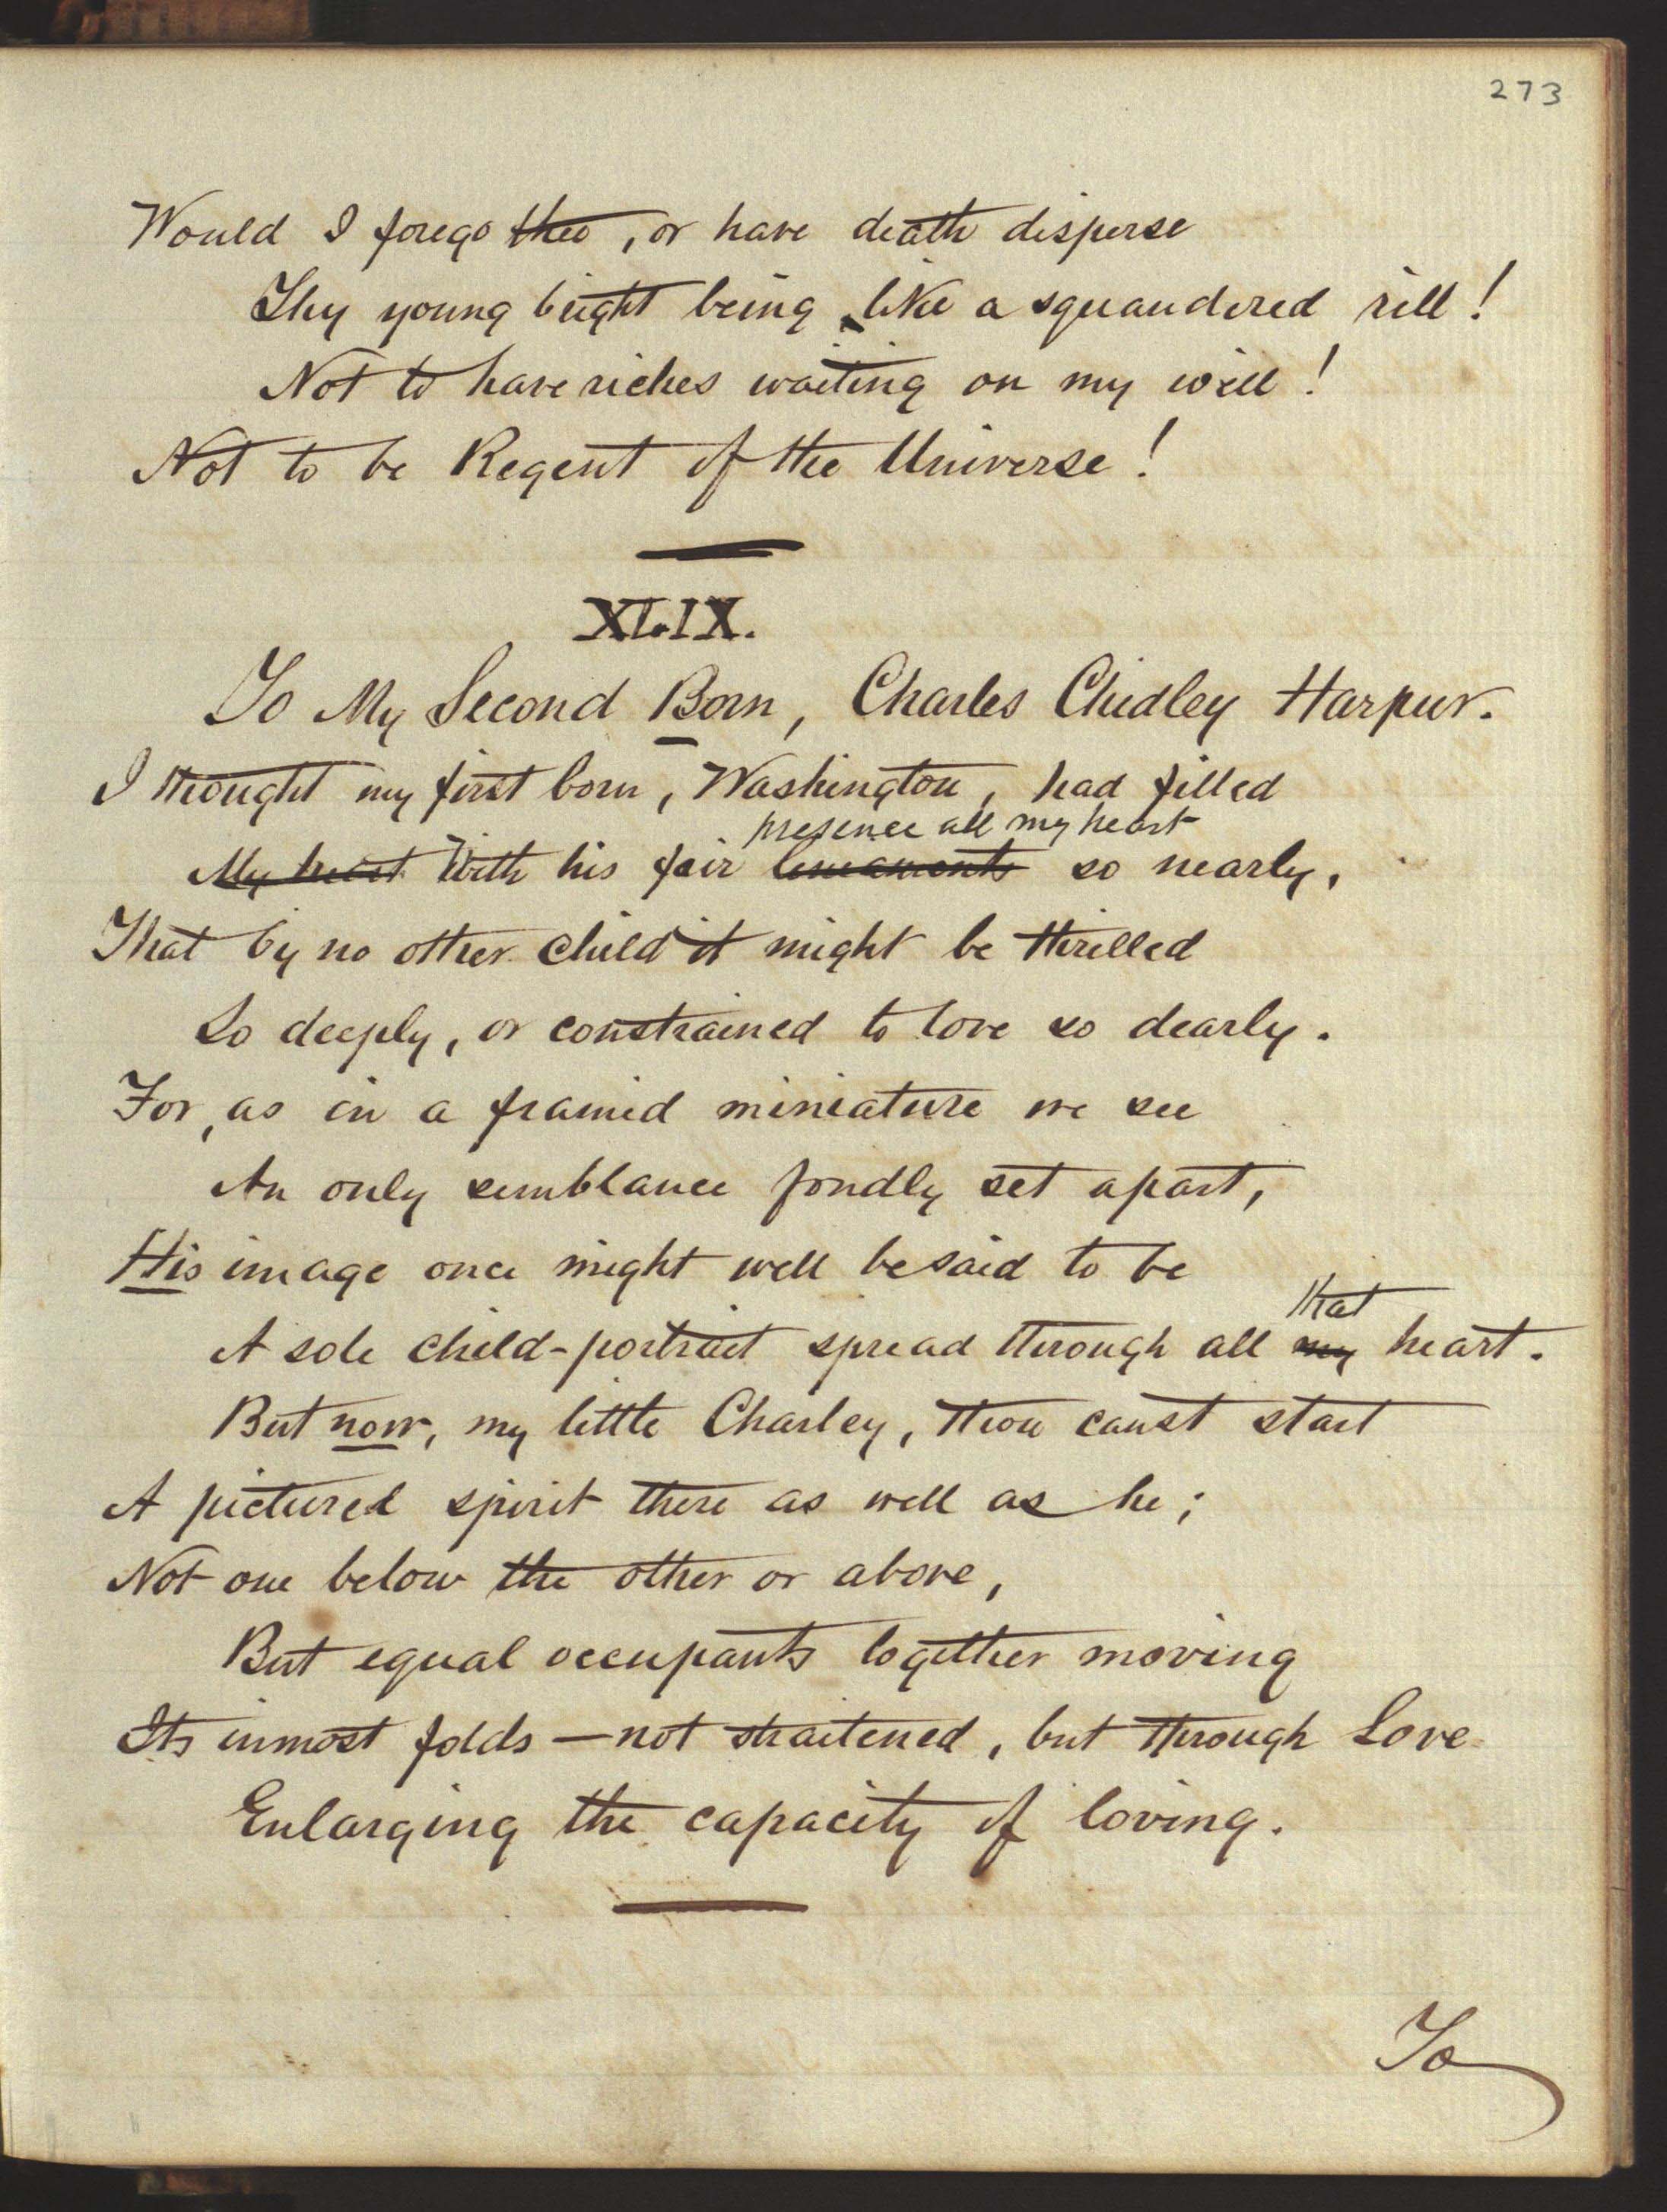 273
Would I forego thee, or have death disperse
Thy young bright being, like a squandered rill!
Not to have riches waiting on my will!
Not to be Regent of the Universe!
XLIX.
To My Second Born, Charles Chidley Harpur.
I thought my first born, Washington, had filled
presence all my heart
My heart With his fair lineaments so nearly,
That by no other child it might be thrilled
So deeply, or constrained to love so dearly.
For, as in a framed miniature we see
An only semblance fondly set apart,
His image once might well be said to be
that
A sole child-portrait spread through all my heart.
But now, my little Charley, thou canst start
A pictured spirit there as well as he;
Not one below the other or above,
But equal occupants together moving
Its inmost folds—not straitened, but through Love
Enlarging the capacity of loving.
To